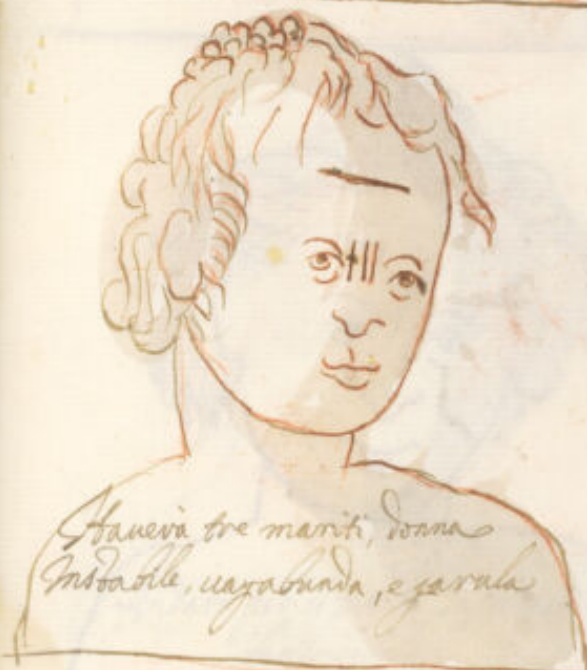 Haueva tre mariti, donna
Instabile, uagabunda, e garula